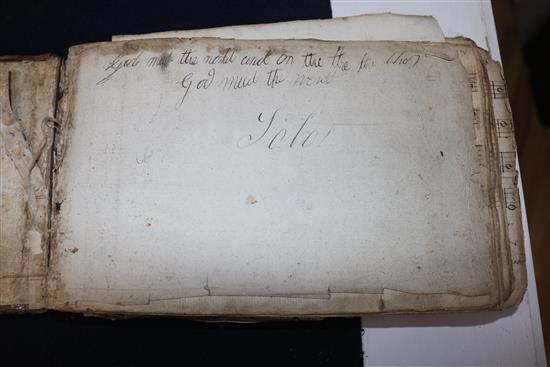 God mad the world and on the the the
God meud the world
Solos